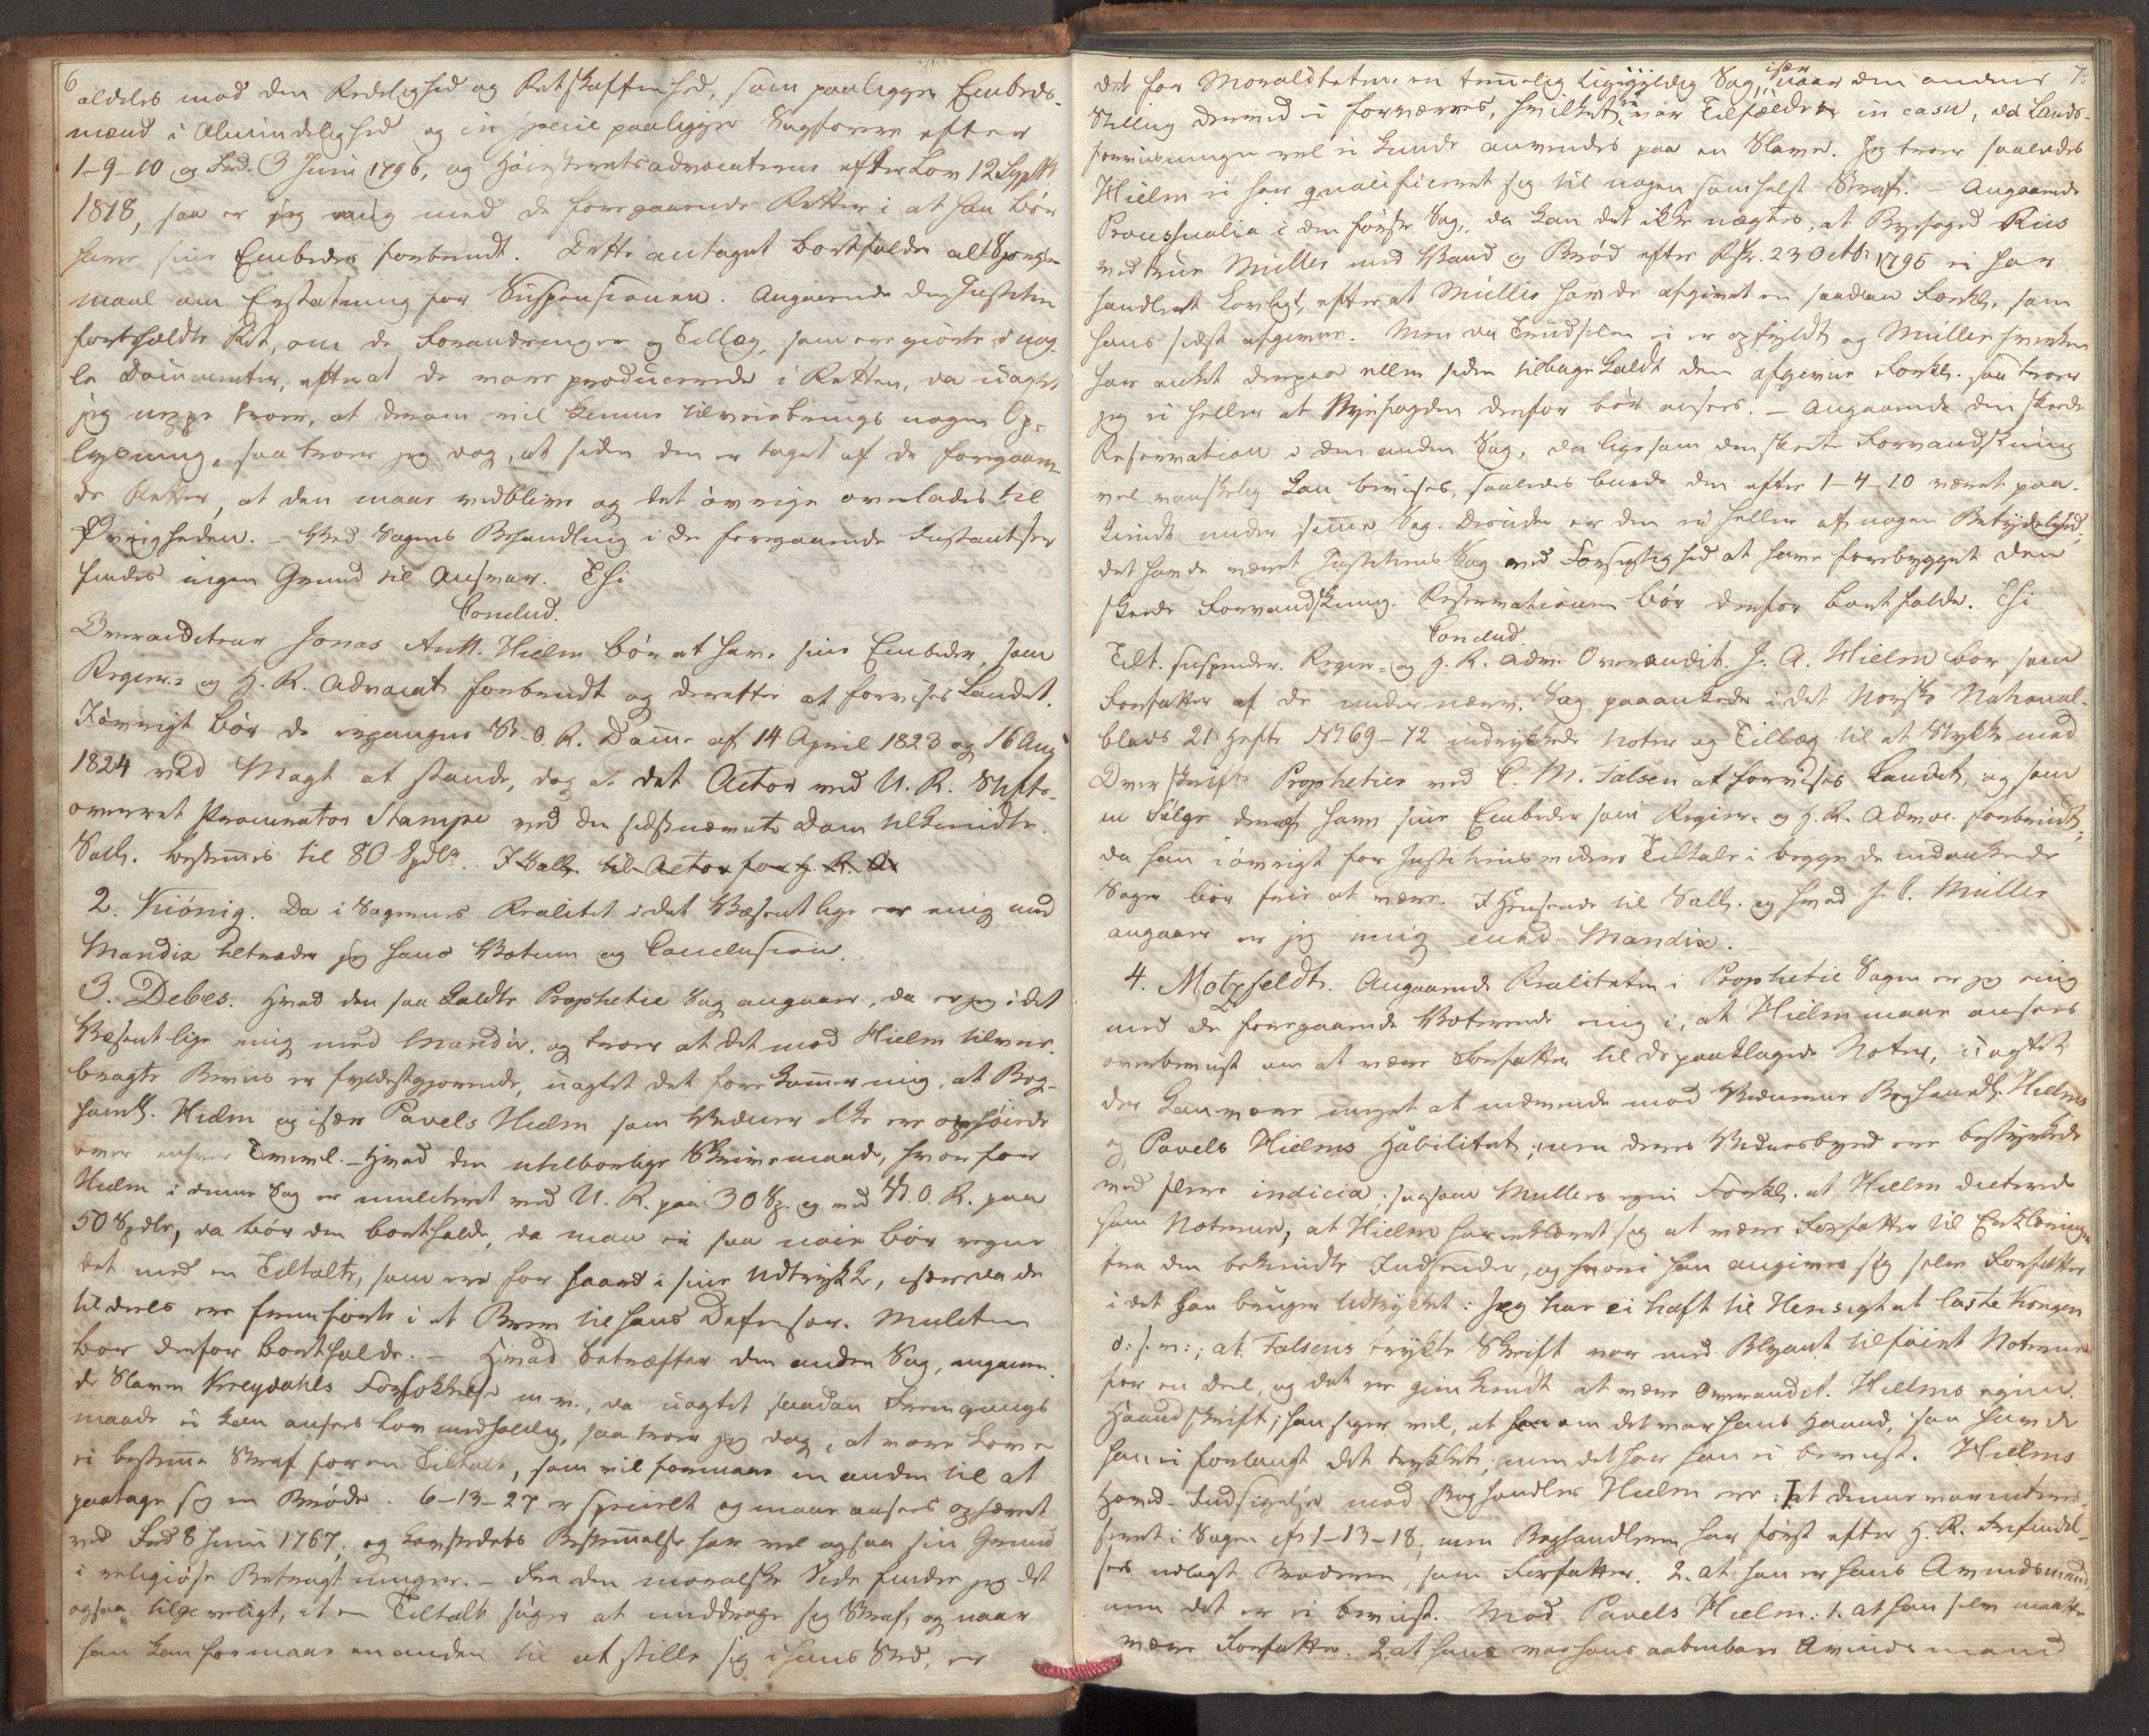 6
aldeles mod den Redelighed og Retskaffenhed, som paaligger Embeds-
mænd i Almindelighed og in specie paaligger Sagførere efter
1-9-10 og Frd. 3 Juni 1796, og Høiesteretsadvocaterne efter Lov 12 Septbr
1818, saa er jeg enig med de foregaaende Retter i at han bør
have sine Embeder forbrudt. Dette antaget bortfalder alt Spørgs-
maal om Erstatning for Suspensionen. Angaaende den Justitien
forbeholdte Ret, om de Forandringer og Tillæg, som ere giorte i nog-
le Documenter, efterat de vare producerede i Retten, da uagtet
jeg neppe troer, at derom vil kunne tilveiebringes nogen Op-
lysning, saa troer jeg dog, at siden den er taget af de foregaaen-
de Retter, at den maae vedblive og det øvrige overlades til
Øvrigheden. – Ved Sagens Behandling i de foregaaende Instantser
findes ingen Grund til Ansvar. Thi
Conclud.
Overauditeur Jonas Ant. Hielm bør at have sine Embeder som
Regjer.- og H. R. Advocat forbrudt og derefter at forvises Landet.
Iøvrigt bør de ergangne St. O. R. Domme af 14 April 1823 og 16 Aug
1824 ved Magt at stande, dog at det Actor ved U. R. Stifts-
overret Procurator Stampe ved den sidstnævnte Dom tilkiendte
Sall. bestemmes til 80 Spdlr. I Sall. til Actor for H. R. A
2. Kiønig. Da i Sagernes Realitet i det Væsentlige er enig med
Mandix tiltræder jeg hans Votum og Conclusion.
3. Debes. Hvad den saa kaldte Prophetie Sag angaaer, da er jeg i det
Væsentlige enig med Mandix, og troer at det mod Hielm tilveie-
bragte Beviis er fyldestgjørende, uagtet det forekommer mig, at Bog-
handl. Hielm og især Pavels Hielm som Vidner ikke ere ophøiede
over enhver Tvivl. – Hvad den utilbørlige Skrivemaade, hvorfor
Hielm i denne Sag er mulcteret ved U. R. paa 30 Sp. og ved St. O. R. paa
50 Spdlr, da bør den bortfalde, da man ei saa nøie bør regne
det med en Tiltalte, som er for haard i sine Udtrykke, især da de
tildeels ere fremførte i et Brev til hans Defensor. Mulcten
bør derfor bortfalde. – Hvad betræffer den anden Sag, angaaen-
de Slaven Kreydahls Forlokkelse m. v., da uagtet saadan Fremgangs
maade ei kan ansees Lov medholdelig, saa troer jeg dog, at vore Love
ei bestemme Straf for en Tiltalt, som vil formaae en anden til at
paatage sig en Brøde. 6-13-27 er specielt og maae ansees ophævet
ved Frd 8 Juni 1767, og Lovstedets Bestemmelse har vel ogsaa sin Grund
i religiøse Betragtninger. – Fra den moralske Side finder jeg det
ogsaa tilgiveligt, at en Tiltalt søger at unddrage sig Straf, og naar
han kan formaae en anden til at stille sig i hans Sted, er
7.
det for Moraliteten en temmelig ligegyldig Sag, især naar den andens
Stilling derved ei forværres, hvilket ei var Tilfældet in casu, da Lands-
forviisningen vel ei kunde anvendes paa en Slave. Jeg troer saaledes
Hielm ei har qvalificeret sig til nogen somhelst Straf. – Angaaende
Processualia i den første Sag, da kan det ikke nægtes, at Byefoged Riis
ved true Müller med Vand og Brød efter Rskr. 23 Octbr 1795 ei har
handlet Lovligt, efterat Müller havde afgivet en saadan Forkl. som
hans sidst afgivne. Men da Trudselen ei er opfyldt og Müller hverken
har anket derpaa eller siden tilbagekaldt den afgivne Forkl. saa troer
jeg ei heller at Byefogden derfor bør ansees. – Angaaende den skeede
Reservation i den anden Sag, da ligesom den skeete Forvandskning
vel vanskelig kan bevises, saaledes burde den efter 1-4-10 været paa-
kiendt under samme Sag. Desuden er den ei heller af nogen Betydelighed;
det havde været Justitiens Sag ved Forsigtighed at have forebygget den
skeede Forvandskning. Reservationen bør derfor bortfalde. Thi
Conclud
Tilt. suspender. Regier- og H. R. Adv. Overaudit. J. A. Hielm bør som
Forfatter af de under nærv. Sag paaankede i det Norske National-
blads 21 Hefte No 69-72 indrykkede Noter og Tillæg til et Stykke med
Overskrift Prophetier ved C. M. Falsen at forvises Landet, og som
en Følge deraf have sine Embeder som Regier. og H. R. Advoc. forbrudt,
da han iøvrigt for Justitiens videre Tiltale i begge de indankede
Sager bør frie at være. I Henseende til Sall. og hvad J. C. Müller
angaaer er jeg enig med Mandix.
4. Motzfeldt. Angaaende Realiteten i Prophetie Sagen er jeg enig
med de foregaaende Voterende enig i, at Hielm maae ansees
overbeviist om at være Forfatter til de paaklagede Noter, uagtet
der kan være meget at indvende mod Vidnerne Boghandl. Hielms
og Pavels Hielms Habilitet; men deres Vidnesbyrd ere bestyrkede
ved flere indicia, saasom Mullers egen Forkl. at Hielm dicterede
ham Noterne, at Hielm har erklæret sig at være Forfatter til Erklæringen
fra den bekiendte Indsender, og hvori han angiver sig selv Forfatter
i det han bruger Udtrykket: Jeg har ei haft til Hensigt at laste Kongen
o: s. v:; at Falsens trykte Skrift var med Blyant tilføiet Noterne
for en Deel, og det er gienkendt at være Overaudit. Hielms egen
Haandskrift; han siger vel, at han om det var hans Haand, saa havde
han ei forlangt det trykket; men det har han ei beviist. Hielms
Hoved-Indsigelse mod Boghandler Hielm er: 1 at denne var interes-
seret i Sagen cfr 1-13-18; men Boghandleren har først efter H. R. Frifindel-
ses udlagt Broderen, som Forfatter. 2. at han er hans Avindsmand,
men det er ei beviist. Mod Pavels Hielm: 1. at han selv maatte
være Forfatter. 2. at han var hans aabenbare Avindsmand